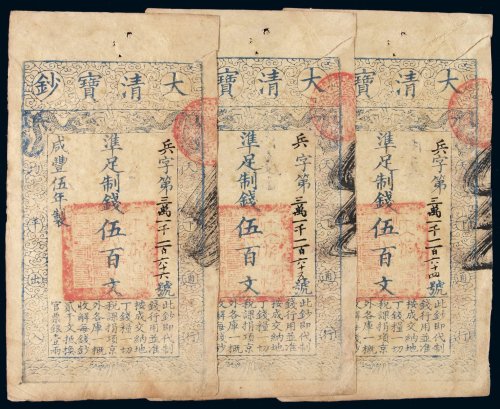 大清寶鈔
兵字第三萬一千一百六十六號
準足制錢伍百文
咸豐伍年製
此鈔即代制
錢行用並准
按成交納地
丁錢糧一切
稅課捐項京
外各庫一概
收解每錢鈔
貳千文抵換
官票銀壹兩
大清寶
兵字第三萬一千一百六十五號
準足制錢伍百文
此鈔即代制
錢行用並准
按成交納地
丁錢糧一切
稅課捐項京
外各庫一概
收解每錢鈔
大清寶
通行
兵字第三萬一千一百六十四號
準足制錢伍百文
此鈔即代制
錢行用並准
按成交納地
丁錢糧一切
稅課捐項京
外各庫一概
收解每錢鈔